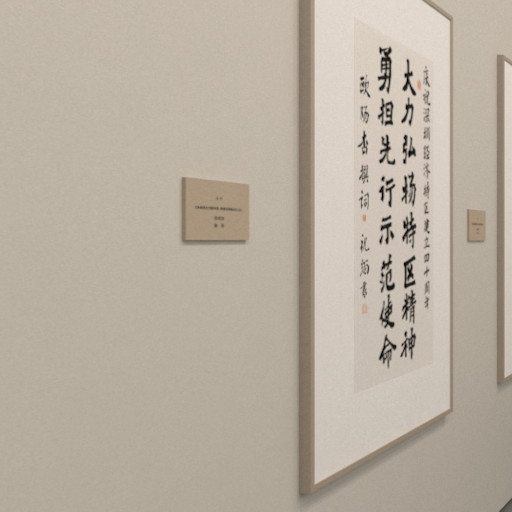 庆祝深圳经济特区建立四十周年
大力弘扬特区精神
勇担先行示范使命
欧阳香撰词 祝韬书